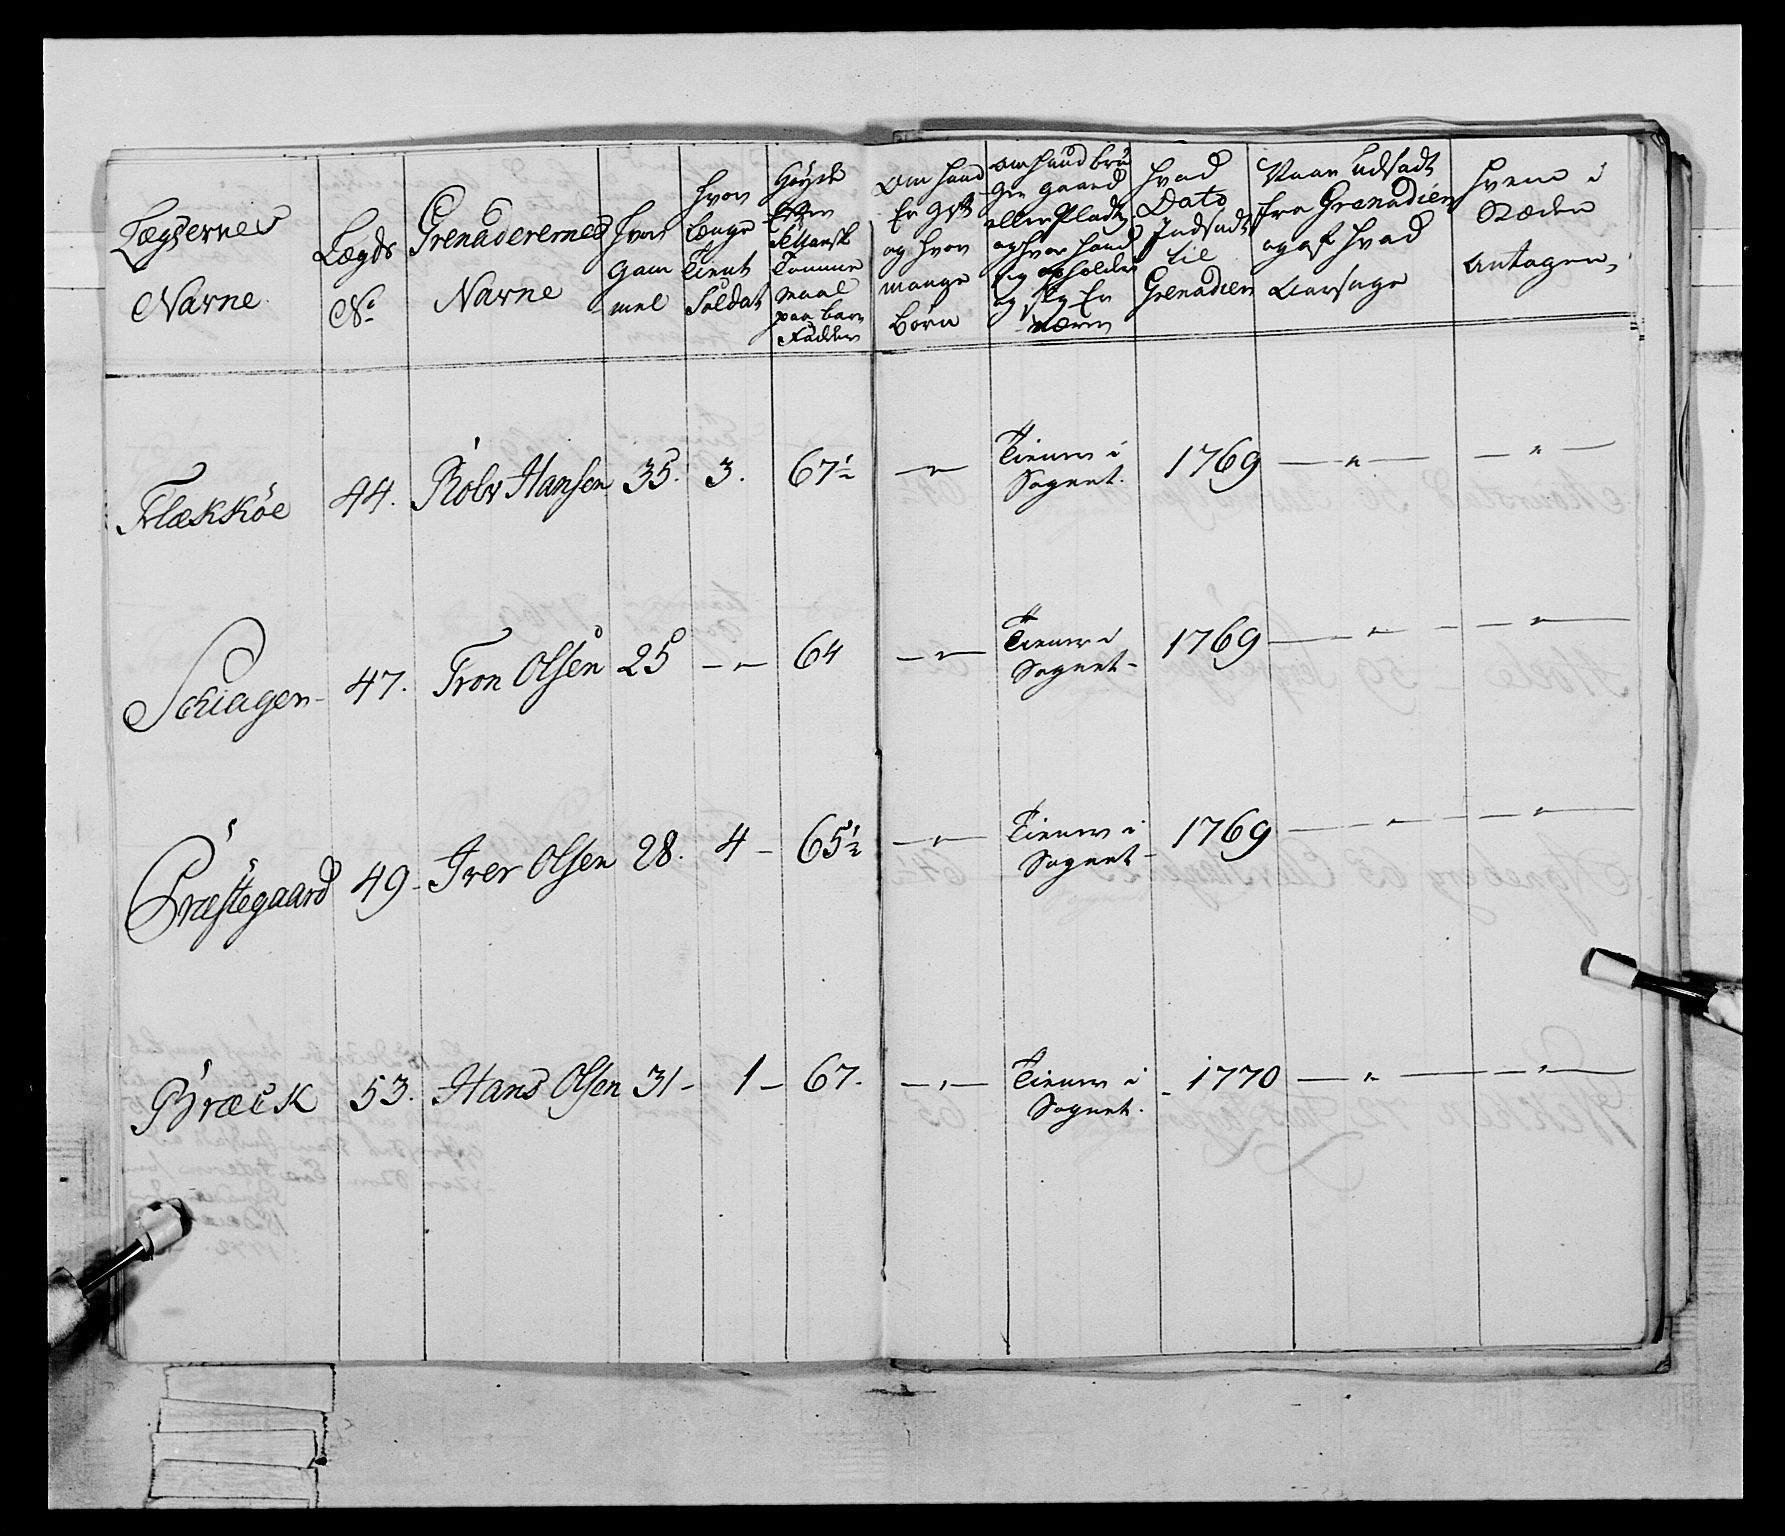 Lægdernes Navne
Lægds No
Grenaderernes Navne
Hvor gammel
Hvor længe Tient Soldat
Høyde efter Sællansk Tomme Maal paa bare Fødder
Om hand Er gift og hvor mange Børn
om hand bruger gaard eller Plads og hvor hand sig opholder og sig Ernærer
Hvad Dato Indsadt til Grenadier
Naar Udsadt fra Grenadier og af Hvad Aarsage
Hvem i Stæden antagen,
Flækkøe 44. Rolv Hansen 35. 3. 67½ — " — Tiener i Sognet. 1769 — " — — " —
Schiagen - 47. Tron Olsen 25 — " — 64 — " — Tiener i Sognet - 1769 — " — — " —
Præstegaard 49 - Iver Olsen 28. 4 - 65½ — " — Tiener i Sognet - 1769 — " — — " —
Bræck 53. Hans Olsen 31 - 1 - 67. — " — Tiener i Sognet. - 1770 — " — — " —